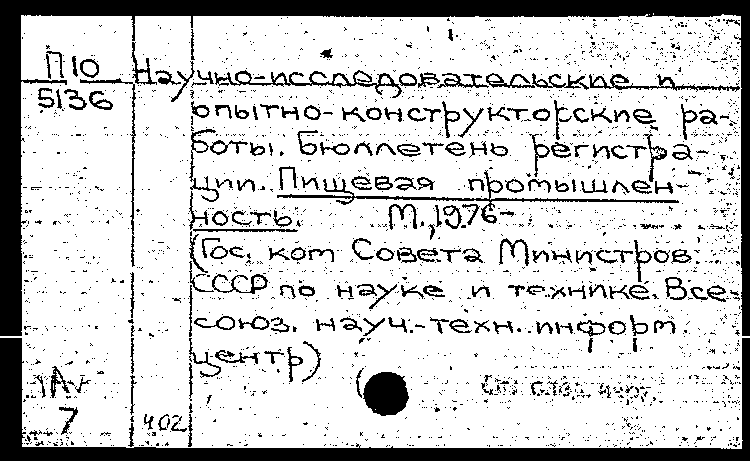 П10 Научно-исследовательские и
5136 опытно-конструкторские ра-
боты. Бюллетень регистра-
ции. Пищевая промышлен-
ность. М., 1976-
(Гос. ком Совета Министров
СССР по науке и технике. Все-
союз. науч.-техн. информ.
центр)
См. след. карт.
7 402